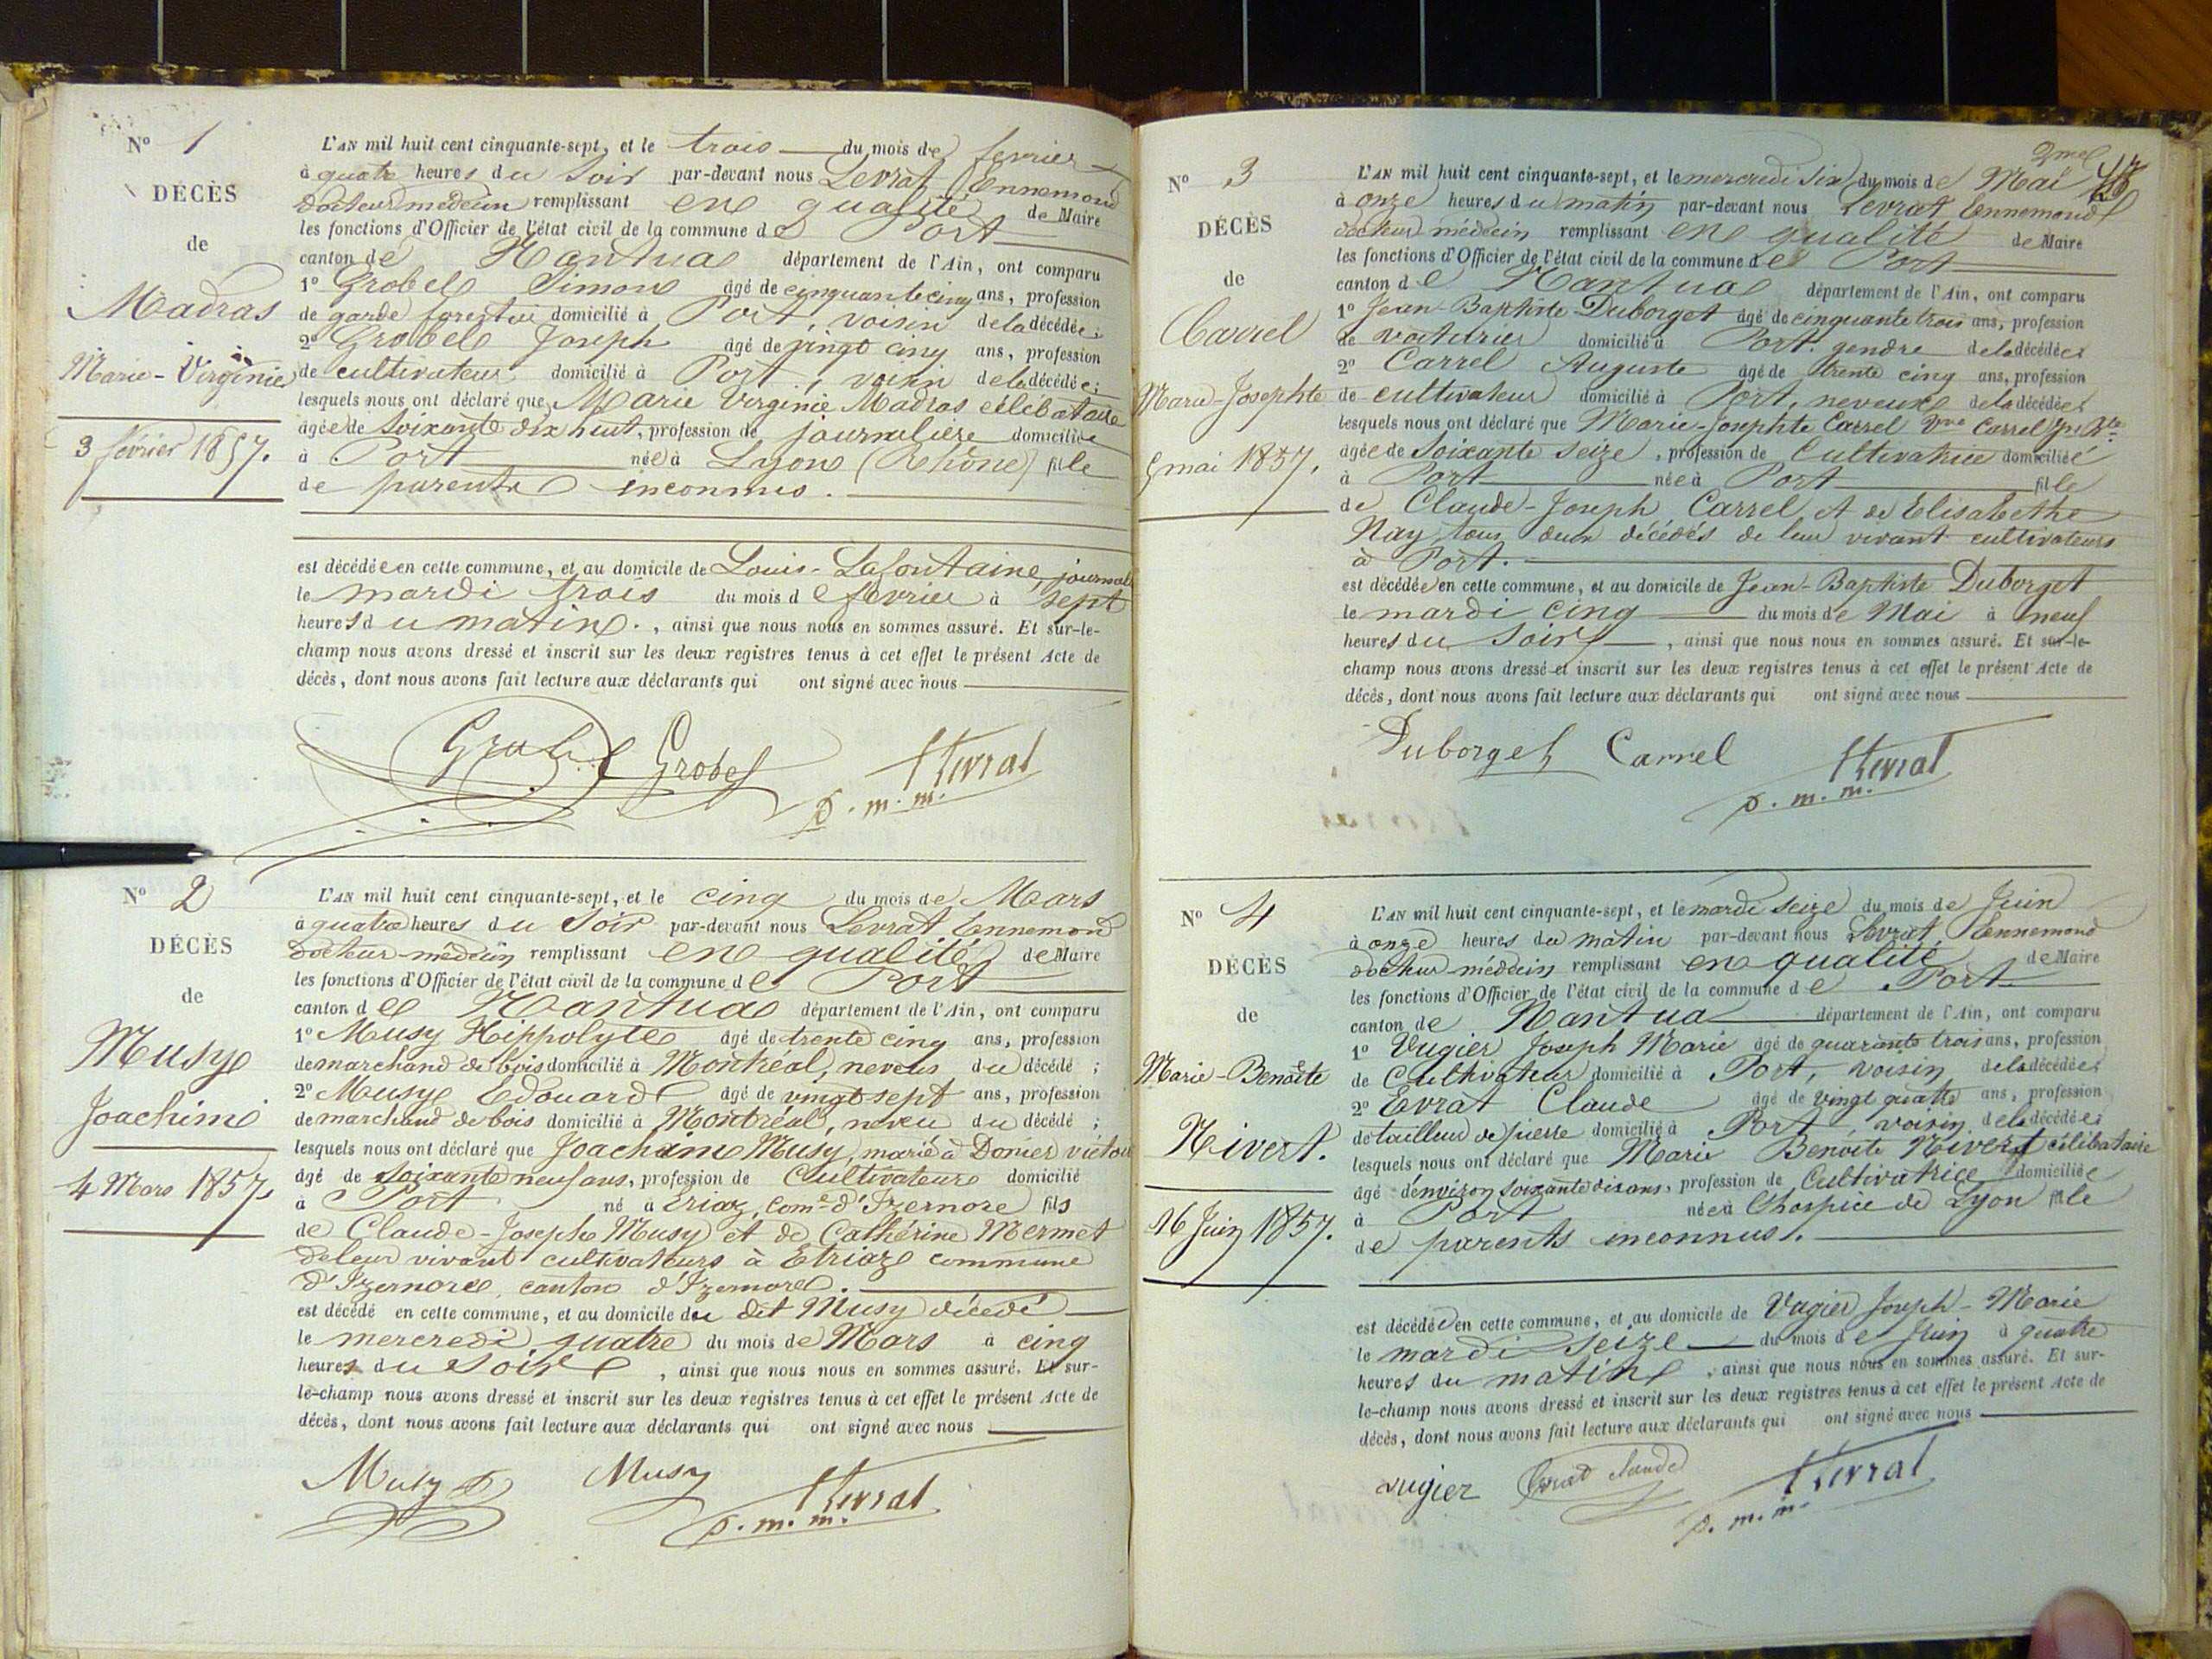 N° 1
DÉCÈS
de
Madras
Marie-Virginie
3 février 1857.
L'AN mil huit cent cinquante-sept, et le trois du mois de fevrier
à quatre heures du soir par-devant nous Levrat Ennemond
docteur médecin remplissant en qualité de Maire
les fonctions d'Officier de l'état civil de la commune de Port
canton de Nantua département de l'Ain, ont comparu
1° Grobel Simon âgé de cinquante cinq ans, profession
de garde forestier domicilié à Port, voisin de la décédée;
2° Grobel Joseph âgé de vingt cinq ans, profession
de cultivateur domicilié à Port, voisin de la décédée;
lesquels nous ont déclaré que Marie Virginie Madras célibataire
âgée de soixante dix huit, profession de journalière domiciliée
à Port née à Lyon (Rhône) fille
de parents inconnus.
est décédée en cette commune, et au domicile de Louis-Lafontaine, journal
le mardi trois du mois de fevrier à sept
heures du matin., ainsi que nous nous en sommes assuré. Et sur-le-
champ nous avons dressé et inscrit sur les deux registres tenus à cet effet le présent Acte de
décès, dont nous avons fait lecture aux déclarants qui ont signé avec nous
Grobel Grobel Levrat
d. m. m.
N° 2
DÉCÈS
de
Musy
Joachim
4 Mars 1857.
L'AN mil huit cent cinquante-sept, et le cinq du mois de Mars
à quatre heures du soir par-devant nous Levrat Ennemond
docteur-médecin remplissant en qualité de Maire
les fonctions d'Officier de l'état civil de la commune de Port
canton de Nantua département de l'Ain, ont comparu
1° Musy Hippolyte âgé de trente cinq ans, profession
de marchand de bois domicilié à Montréal, neveu du décédé;
2° Musy Edouard âgé de vingt sept ans, profession
de marchand de bois domicilié à Montréal, neveu du décédé;
lesquels nous ont déclaré que Joachim Musy, marié à Donier victoi
âgé de soixante neuf ans, profession de Cultivateur domicilié
à Port né à Eriaz, Com.e d'Izernore fils
de Claude-Joseph Musy et de Cathérine Mermet
de leur vivant cultivateurs à Etriaz commune
d'Izernore, canton d'Izernore.
est décédé en cette commune, et au domicile du dit Musy décédé
le mercredi quatre du mois de Mars à cinq
heures du soir, ainsi que nous nous en sommes assuré. Et sur-
le-champ nous avons dressé et inscrit sur les deux registres tenus à cet effet le présent Acte de
décès, dont nous avons fait lecture aux déclarants qui ont signé avec nous
Musy Musy Levrat
d. m. m.
N° 3
DÉCÈS
de
Carrel
Marie-Josephte
5 mai 1857.
L'AN mil huit cent cinquante-sept, et le mercredi six du mois de Mai
à onze heures du matin par-devant nous Levrat Ennemond
docteur médecin remplissant en qualité de Maire
les fonctions d'Officier de l'état civil de la commune de Port
canton de Nantua département de l'Ain, ont comparu
1° Jean-Baptiste Duborget âgé de cinquante trois ans, profession
de voiturier domicilié à Port. gendre de la décédée;
2° Carrel Auguste âgé de trente cinq ans, profession
de cultivateur domicilié à Port, neveux de la décédée;
lesquels nous ont déclaré que Marie-Josephte Carrel Vve Carrel
âgée de soixante seize, profession de Cultivatrice domiciliée
à Port née à Port fille
de Claude-Joseph Carrel et de Elisabethe
Nay, tous deux décédés de leur vivant cultivateurs
à Port.
est décédée en cette commune, et au domicile de Jean-Baptiste Duborget
le mardi cinq du mois de Mai à neuf
heures du soir, ainsi que nous nous en sommes assuré. Et sur-le-
champ nous avons dressé et inscrit sur les deux registres tenus à cet effet le présent Acte de
décès, dont nous avons fait lecture aux déclarants qui ont signé avec nous
Duborget Carrel Levrat
d. m. m.
N° 4
DÉCÈS
de
Marie-Benoîte
Nivert.
16 Juin 1857.
L'AN mil huit cent cinquante-sept, et le mardi seize du mois de Juin
à onze heures du matin par-devant nous Levrat Ennemond
docteur-médecin remplissant en qualité de Maire
les fonctions d'Officier de l'état civil de la commune de Port
canton de Nantua département de l'Ain, ont comparu
1° Vugier Joseph Marie âgé de quarante trois ans, profession
de Cultivateur domicilié à Port, voisin de la décédée;
2° Evrat Claude âgé de vingt quatre ans, profession
de tailleur de pierre domicilié à Port, voisin de la décédée;
lesquels nous ont déclaré que Marie Benoite Nivert célibataire
âgé d'environ soixante dix ans, profession de Cultivatrice domiciliée
à Port née à l'hospice de Lyon fille
de parents inconnus.
est décédée en cette commune, et au domicile de Vugier Joseph-Marie
le mardi seize du mois de Juin à quatre
heures du matin, ainsi que nous nous en sommes assuré. Et sur-
le-champ nous avons dressé et inscrit sur les deux registres tenus à cet effet le présent Acte de
décès, dont nous avons fait lecture aux déclarants qui ont signé avec nous
vugier Evrat claude Levrat
d. m. m.